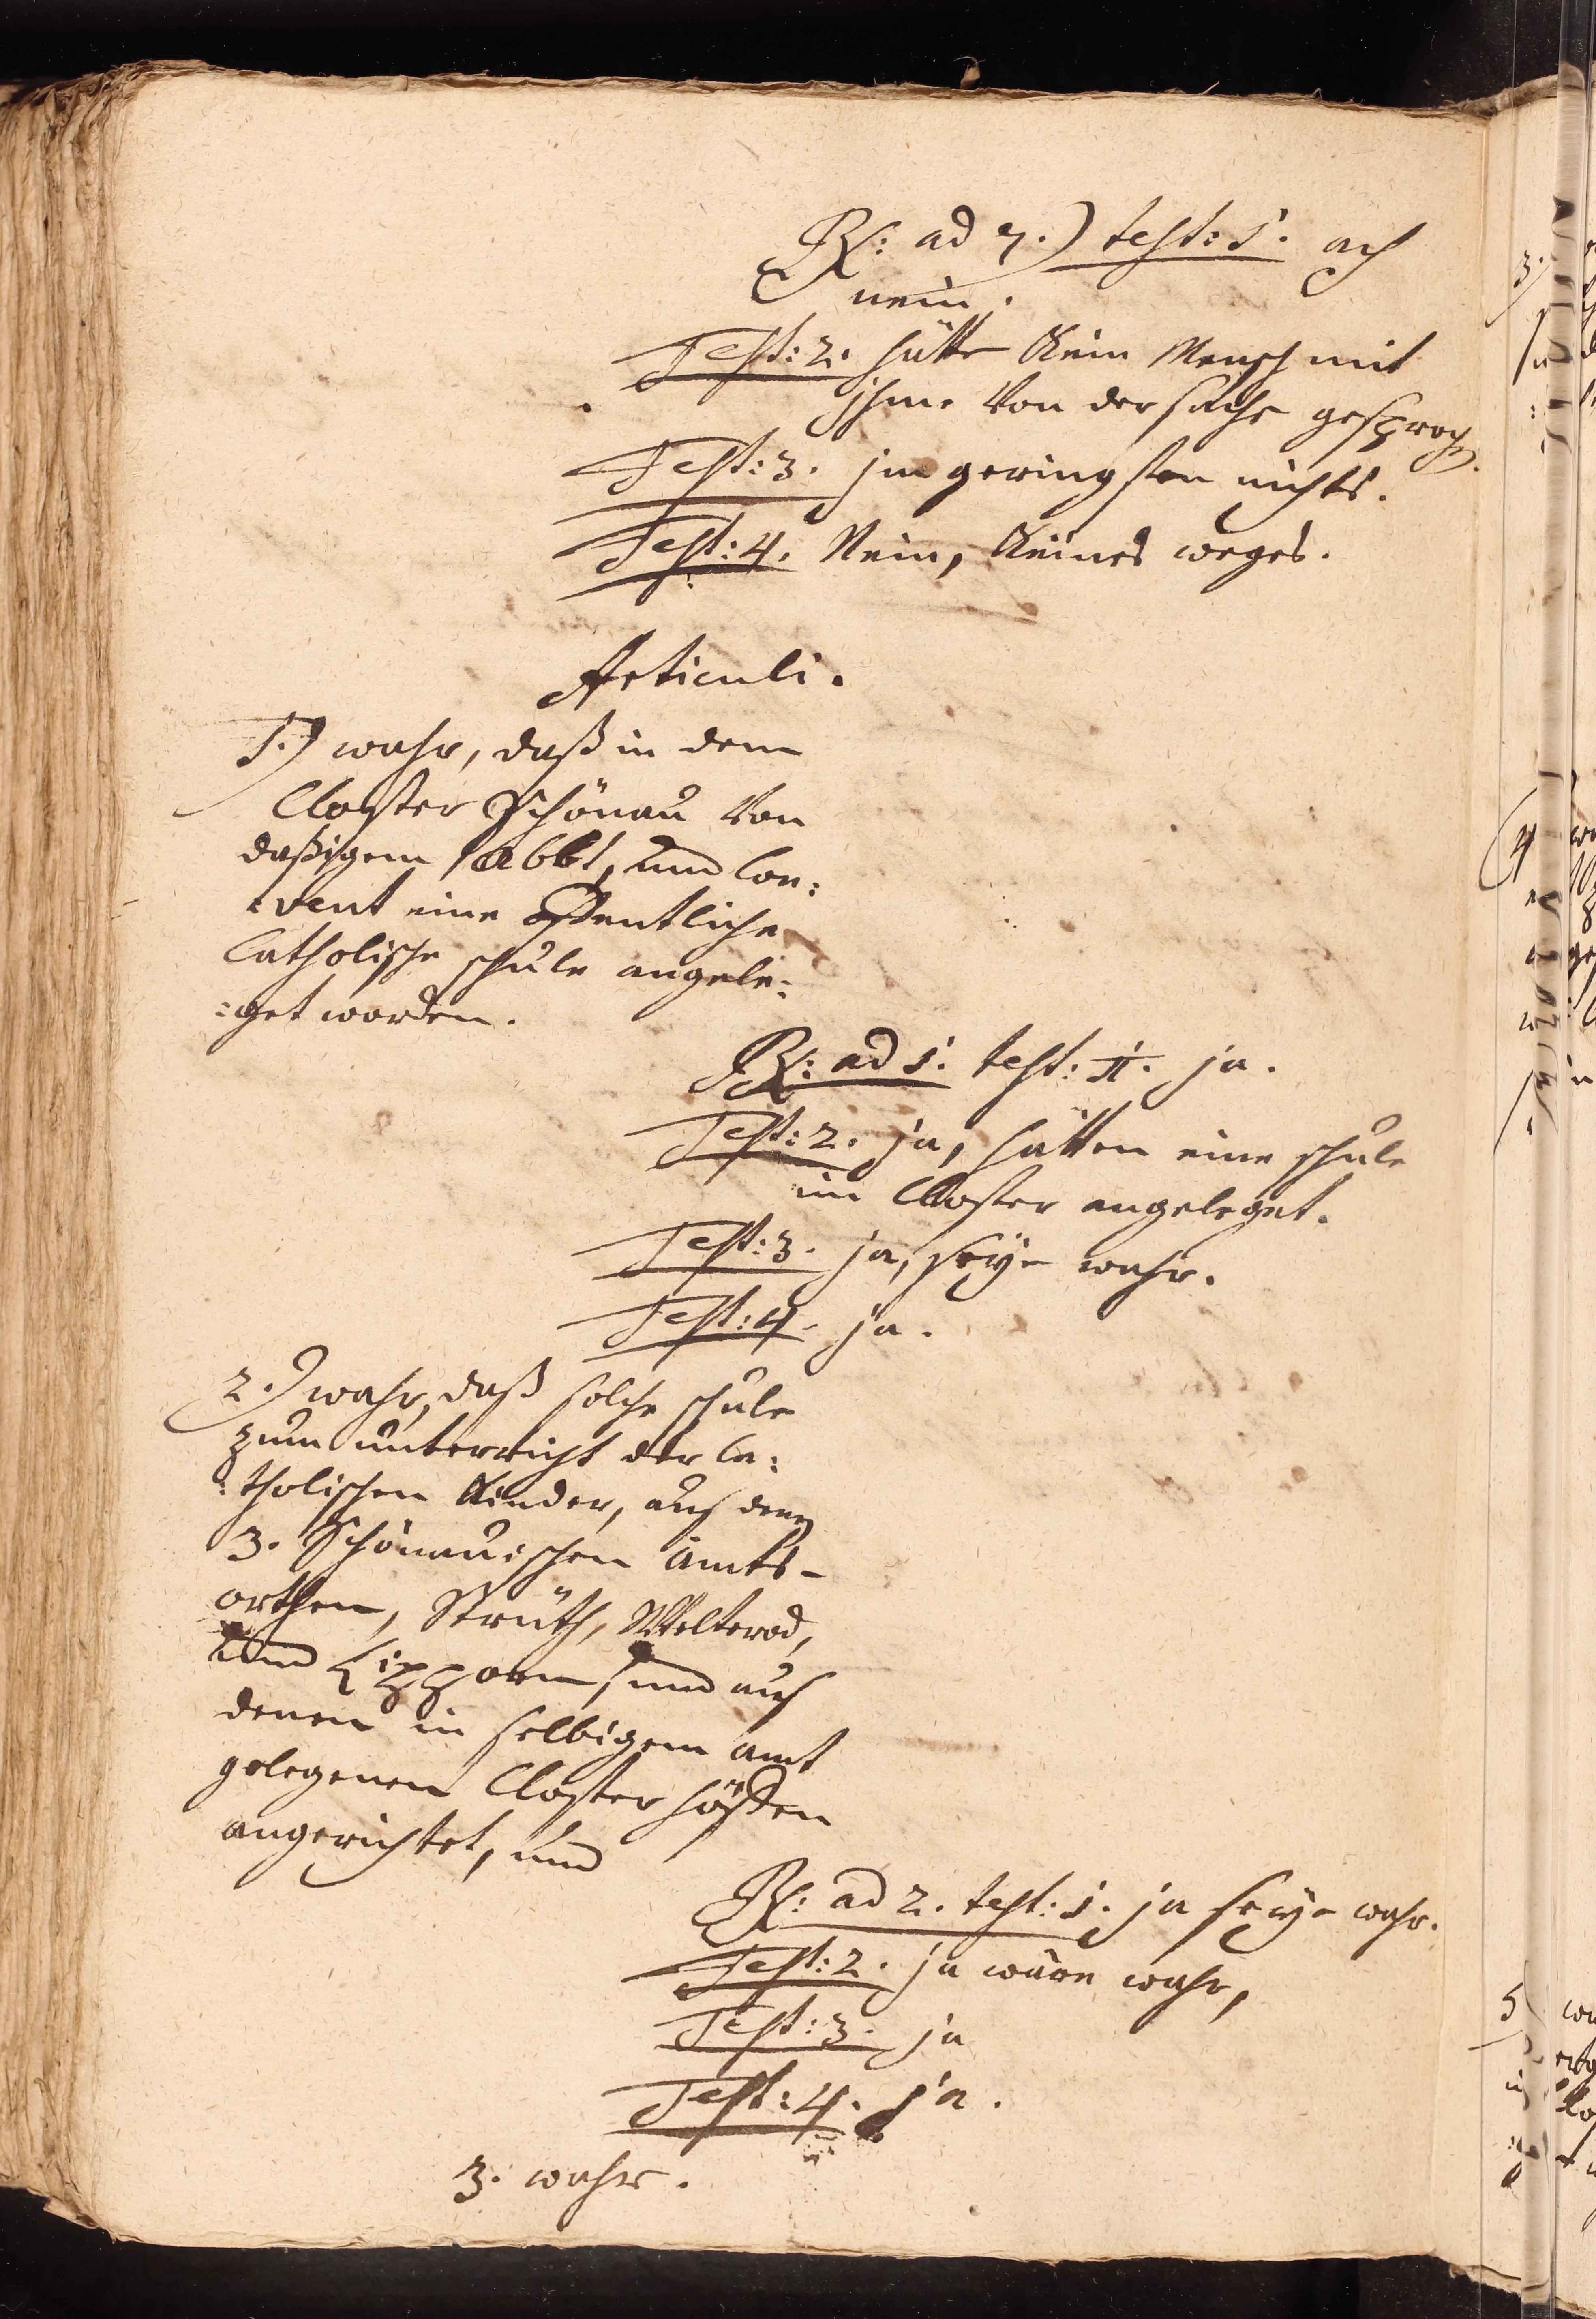 Rx: ad 7.) test: 1. ach
nein.
Test: 2. hätte Kein Mensch mit
ihme Von der sache gesproch.
Test: 3. im geringsten nichts.
Test: 4. Nein, Keines weges.
Articuli.
1.) wahr, daß in dem
Closter Schönau Von
daßigem Abbt, und Con:
:vent eine öffentliche
Catholische schule angele:
:get worden.
Rx: ad 1. test: 1. ja.
Test: 2. ja, hätten eine schule
im Closter angeleget.
Test: 3. ja, seye wahr.
Test: 4. ja.
2.) wahr, daß solche schule
zum unterricht der Ca:
:tholischen Kinder, aus denen
3. Schönauischen Amts-
orthen, Strüth, Welterod,
und Lipporn, und aus
denen in selbigem amt
gelegenen Closter höffen
angerichtet, und
Rx: ad 2. test: 1. ja seye wahr.
Test: 2. ja wäre wahr,
Test: 3. ja
Test: 4. ja.
3. wahr.